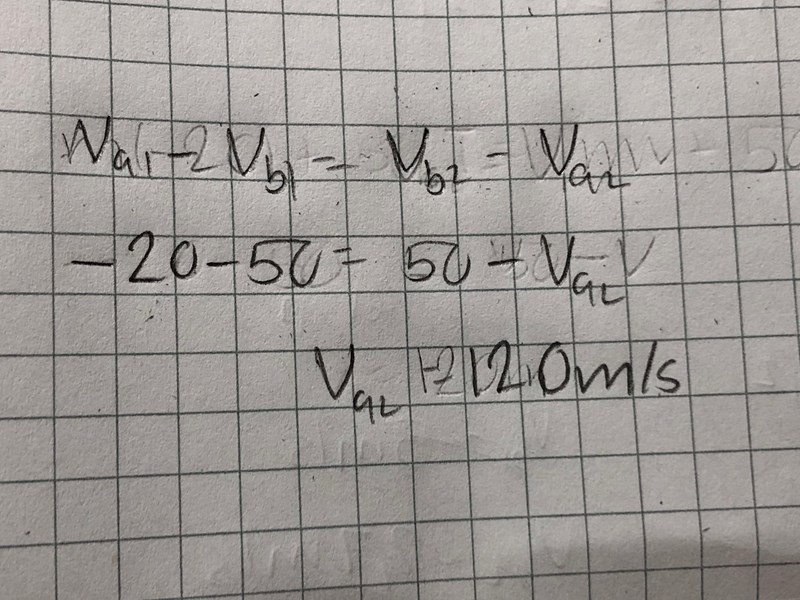 Va1 - 2Vb1 = Vb2 - Va2
-20 - 50 = 50 - Va2
Va2 = 120 m/s